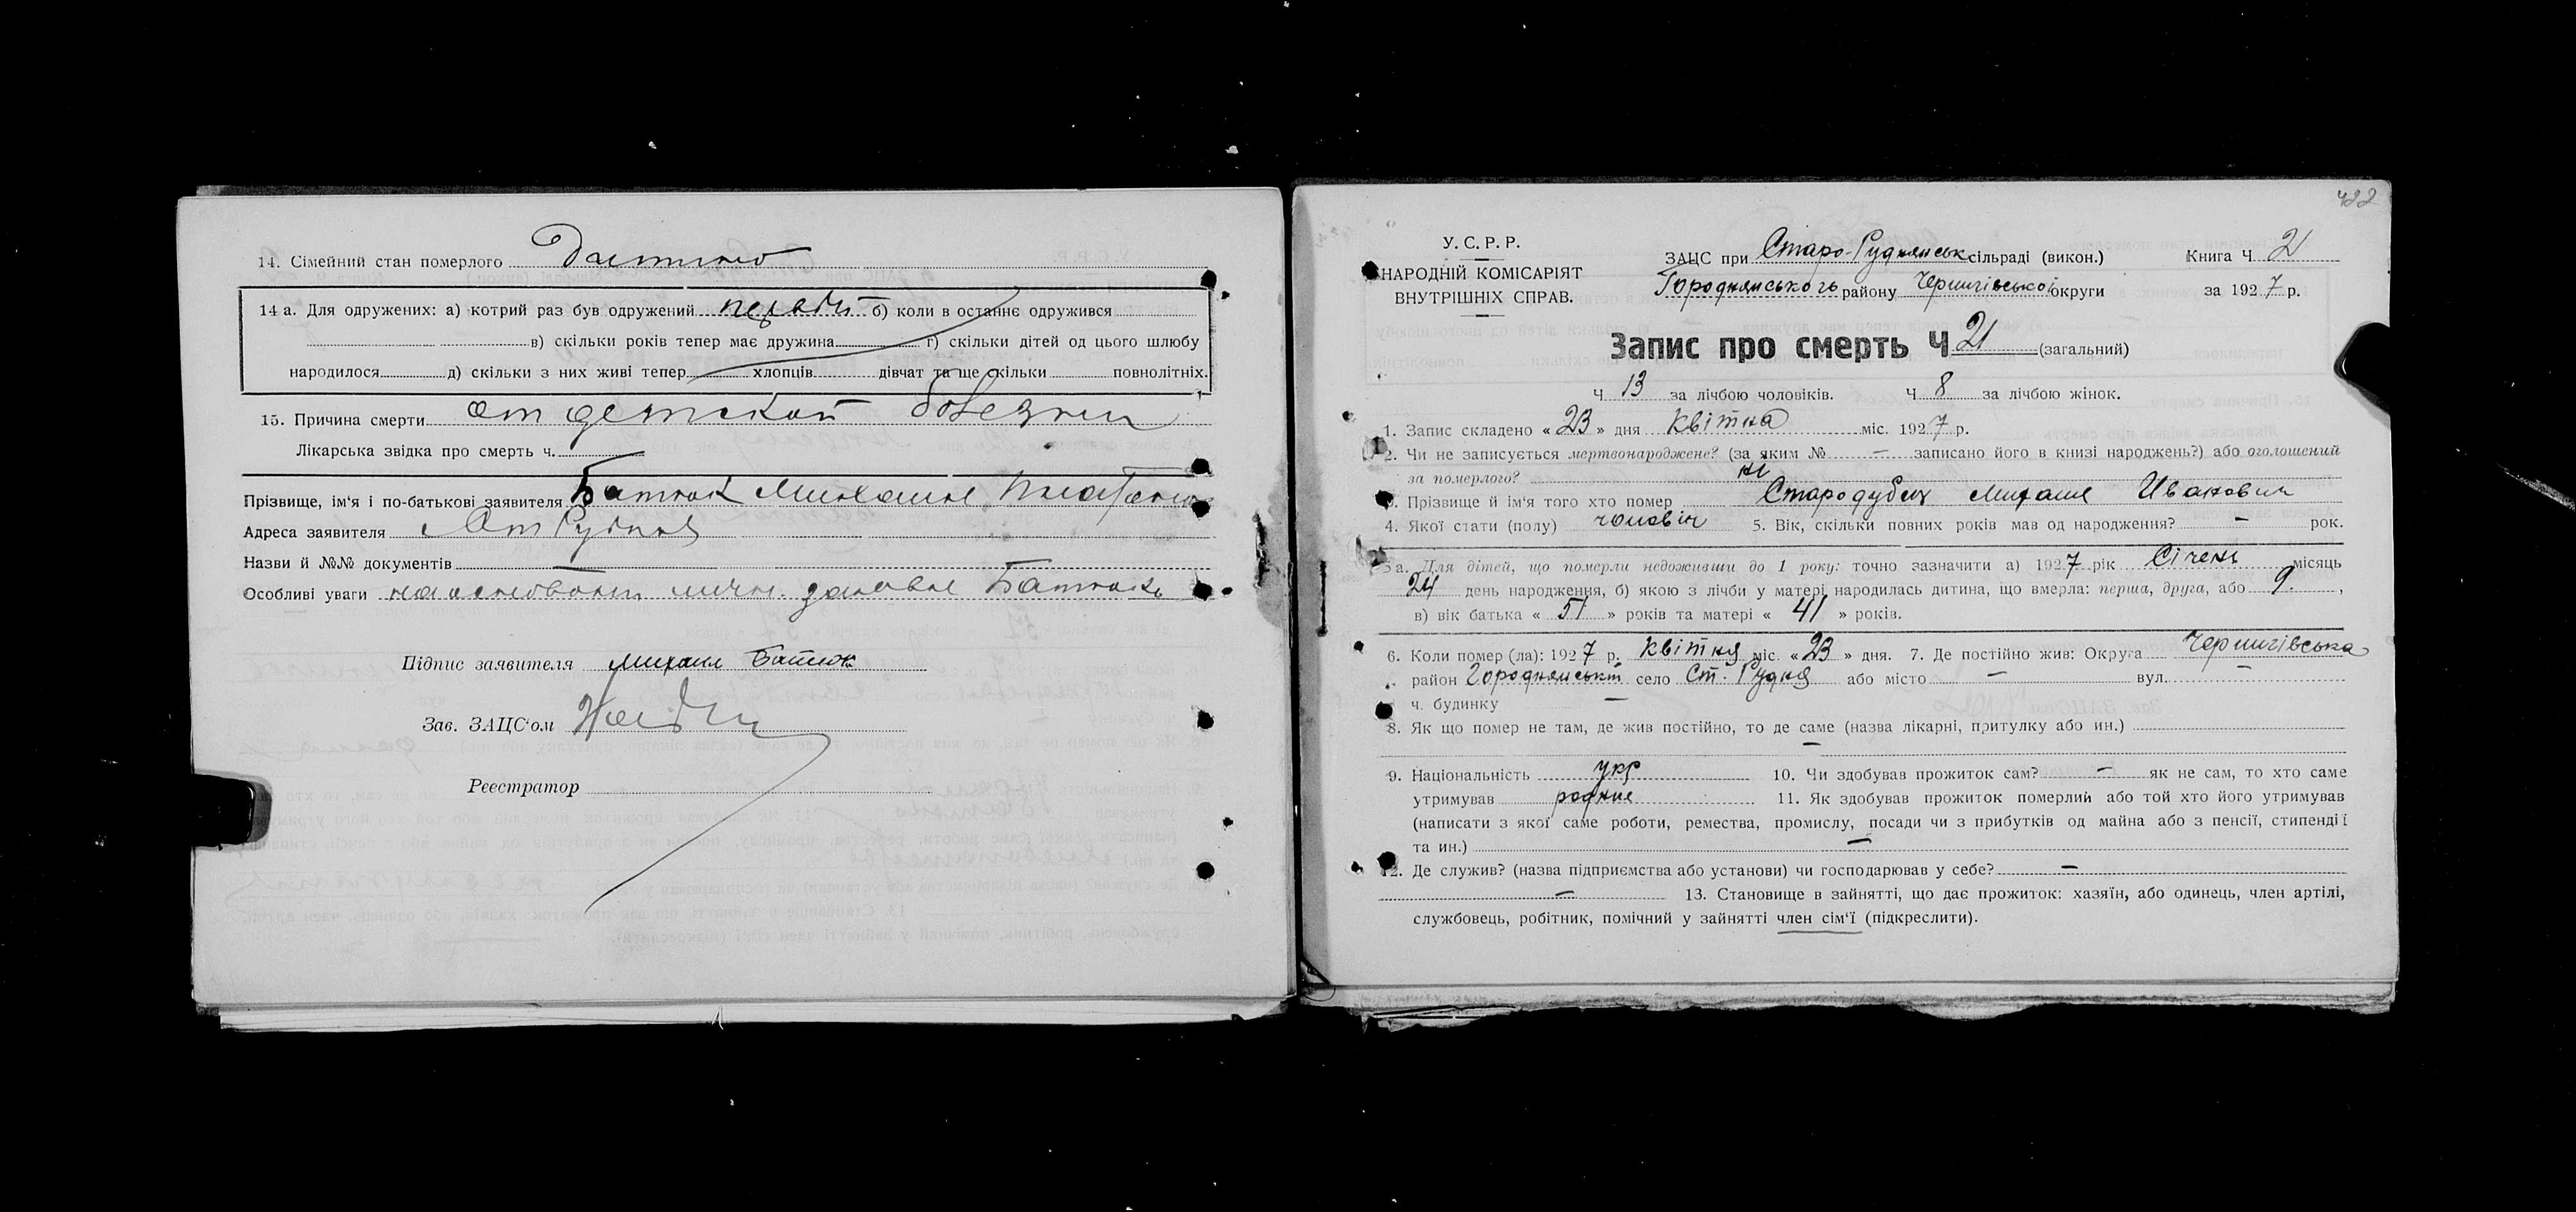 14. Сімейний стан померлого Дитина
14 а. Для одружених: а) котрий раз був одружений б) коли в останнє одружився
в) скільки років тепер має дружина г) скільки дітей од цього шлюбу
народилося д) скільки з них живі тепер хлопців дівчат та ще скільки повнолітніх.
15. Причина смерти от детской болезни
Лікарська звідка про смерть ч.
Прізвище, ім'я і по-батькові заявителя Батюк Михаил Платонов
Адреса заявителя Ст Рудня
Назви й №№ документів —
Особливі уваги на основании личн. Батюка
Підпис заявителя Михаил Батюк
Зав. ЗАЦС'ом
Реєстратор
422
У. С. Р. Р.
НАРОДНІЙ КОМІСАРІЯТ
ВНУТРІШНІХ СПРАВ.
ЗАЦС при Старо-Руднянськ сільраді (викон.) Книга Ч 2
Городнянського району Чернигівської округи за 1927 р.
Запис про смерть Ч 21 (загальний)
Ч 13 за лічбою чоловіків. Ч 8 за лічбою жінок.
1. Запис складено « 23 » дня квітня міс. 1927 р.
2. Чи не записується мертвонароджене? (за яким № — записано його в книзі народжень?) або оголошений
за померлого? ні
3. Прізвище й ім'я того хто помер Стародубец Михаил Иванович
4. Якої стати (полу) чоловіч 5. Вік, скільки повних років мав од народження? — рок.
5а. Для дітей, що померли недоживши до 1 року: точно зазначити а) 1927 рік Січень місяць
24 день народження, б) якою з лічби у матері народилась дитина, що вмерла: перша, друга, або 9.,
в) вік батька « 51 » років та матері « 41 » років.
6. Коли помер (ла): 1927 р. квітня міс. « 23 » дня. 7. Де постійно жив: Округа Чернигівська
район Городнянський село Ст. Рудня або місто — вул. —
ч. будинку —
8. Як що помер не там, де жив постійно, то де саме (назва лікарні, притулку або ин.)
—
9. Національність укр 10. Чи здобував прожиток сам? — як не сам, то хто саме
утримував родние 11. Як здобував прожиток померлий або той хто його утримував
(написати з якої саме роботи, ремества, промислу, посади чи з прибутків од майна або з пенсії, стипендії
та ин.) —
12. Де служив? (назва підприємства або установи) чи господарював у себе? —
— 13. Становище в зайнятті, що дає прожиток: хазяїн, або одинець, член артілі,
службовець, робітник, помічний у зайнятті член сім'ї (підкреслити).